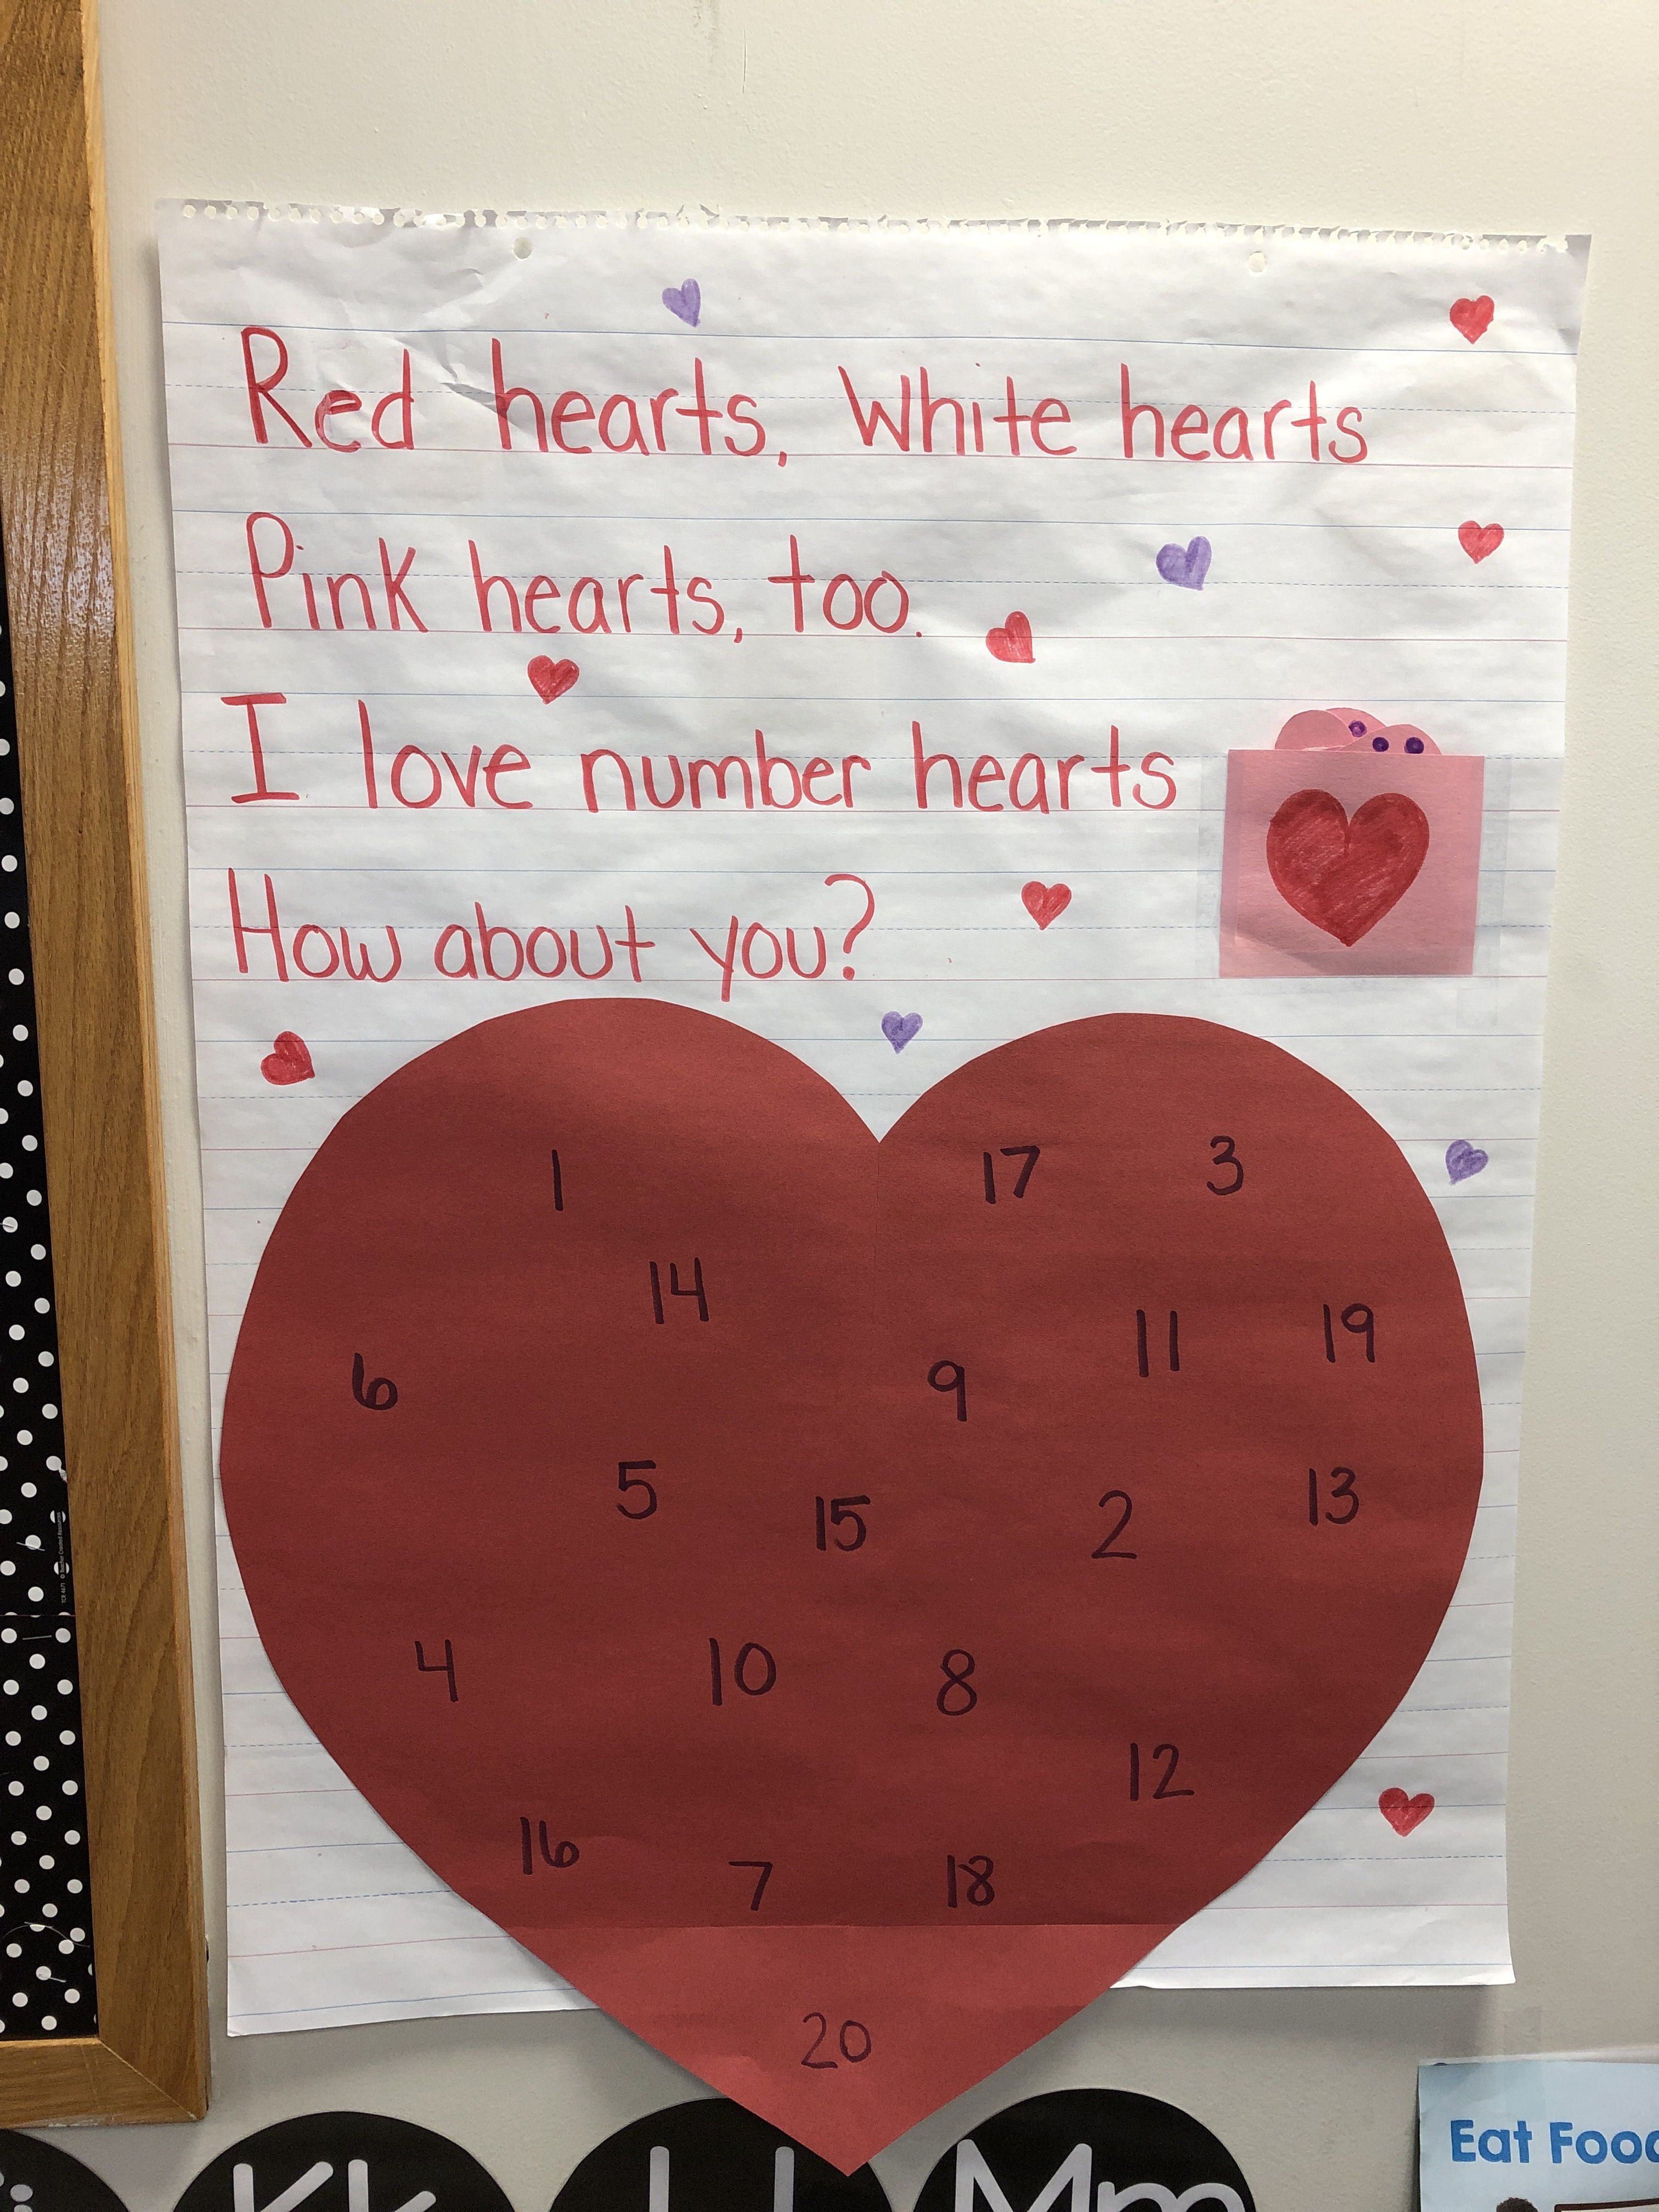 Red hearts, White hearts
Pink hearts, too.
I love number hearts
How about you?
1 17 3
14
11 19
6 9
5 15 2 13
4 10 8
12
16 7 18
20
Kk
Mm
Eat